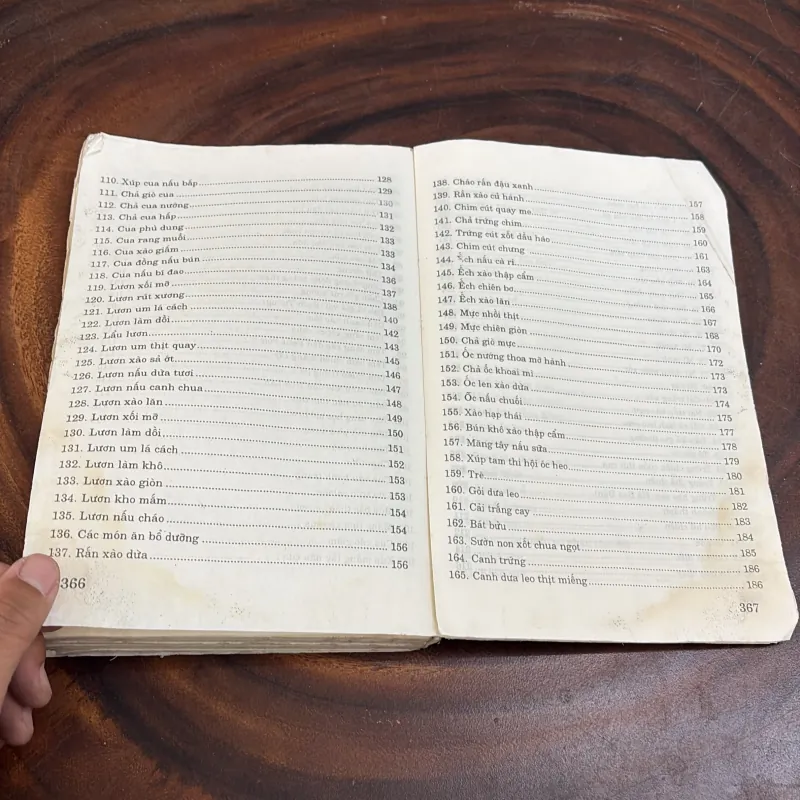 110. Xúp cua nấu bắp 128
111. Chả giò cua 129
112. Cua nướng 130
113. Chả cua hấp 131
114. Cua phù dung 132
115. Cua rang muối 133
116. Cua xào giấm 133
117. Cua đồng nấu bún 134
118. Cua nấu bí đao 136
119. Lươn xối mỡ 137
120. Lươn rút xương 138
121. Lươn um lá cách 140
122. Lươn làm dồi 142
123. Lẩu lươn 143
124. Lươn um thịt quay 145
125. Lươn xào sả ớt 146
126. Lươn nấu dừa tươi 147
127. Lươn nấu canh chua 148
128. Lươn xào lăn 149
129. Lươn xối mỡ 150
130. Lươn làm dồi 151
131. Lươn um lá cách 152
132. Lươn làm khô 153
133. Lươn xào giòn 153
134. Lươn kho mắm 154
135. Lươn nấu cháo 154
136. Các món ăn bổ dưỡng 156
137. Rắn xào dừa 156
366
138. Cháo rắn đậu xanh 157
139. Rắn xào củ hành 158
140. Chim cút quay me 159
141. Chả trứng chim 160
142. Trứng cút xốt dầu hào 161
143. Chim cút chưng 163
144. Ếch nấu cà ri 164
145. Ếch xào thập cẩm 165
146. Ếch chiên bơ 166
147. Ếch xào lăn 167
148. Mực nhồi thịt 168
149. Mực chiên giòn 170
150. Chả giò mực 172
151. Ốc nướng thoa mỡ hành 173
152. Chả ốc khoai mì 173
153. Ốc len xào dừa 174
154. Ốc nấu chuối 175
155. Xào hạp thái 177
156. Bún khô xào thập cẩm 178
157. Măng tây nấu sữa 179
158. Xúp tam thi hội óc heo 180
159. Trè 181
160. Gỏi dưa leo 182
161. Cải trắng cay 183
162. Bát bửu 184
163. Sườn non xốt chua ngọt 185
164. Canh trứng 186
165. Canh dưa leo thịt miếng 186
367